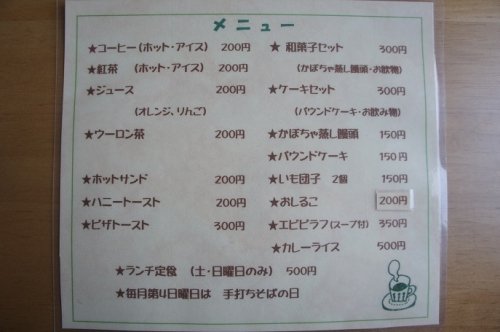 メニュー
★コーヒー(ホット・アイス) 200円
★紅茶 (ホット・アイス) 200円
★ジュース 200円
(オレンジ、りんご)
★ウーロン茶 200円
★ホットサンド 200円
★ハニートースト 200円
★ピザトースト 300円
★ 和菓子セット 300円
(かぼちゃ蒸し饅頭・お飲物)
★ケーキセット 300円
(パウンドケーキ・お飲み物)
★かぼちゃ蒸し饅頭 150円
★パウンドケーキ 150円
★いも団子 2個 150円
★おしるこ 200円
★エビピラフ(スープ付) 350円
★カレーライス 500円
★ランチ定食 (土・日曜日のみ) 500円
★毎月第4日曜日は 手打ちそばの日